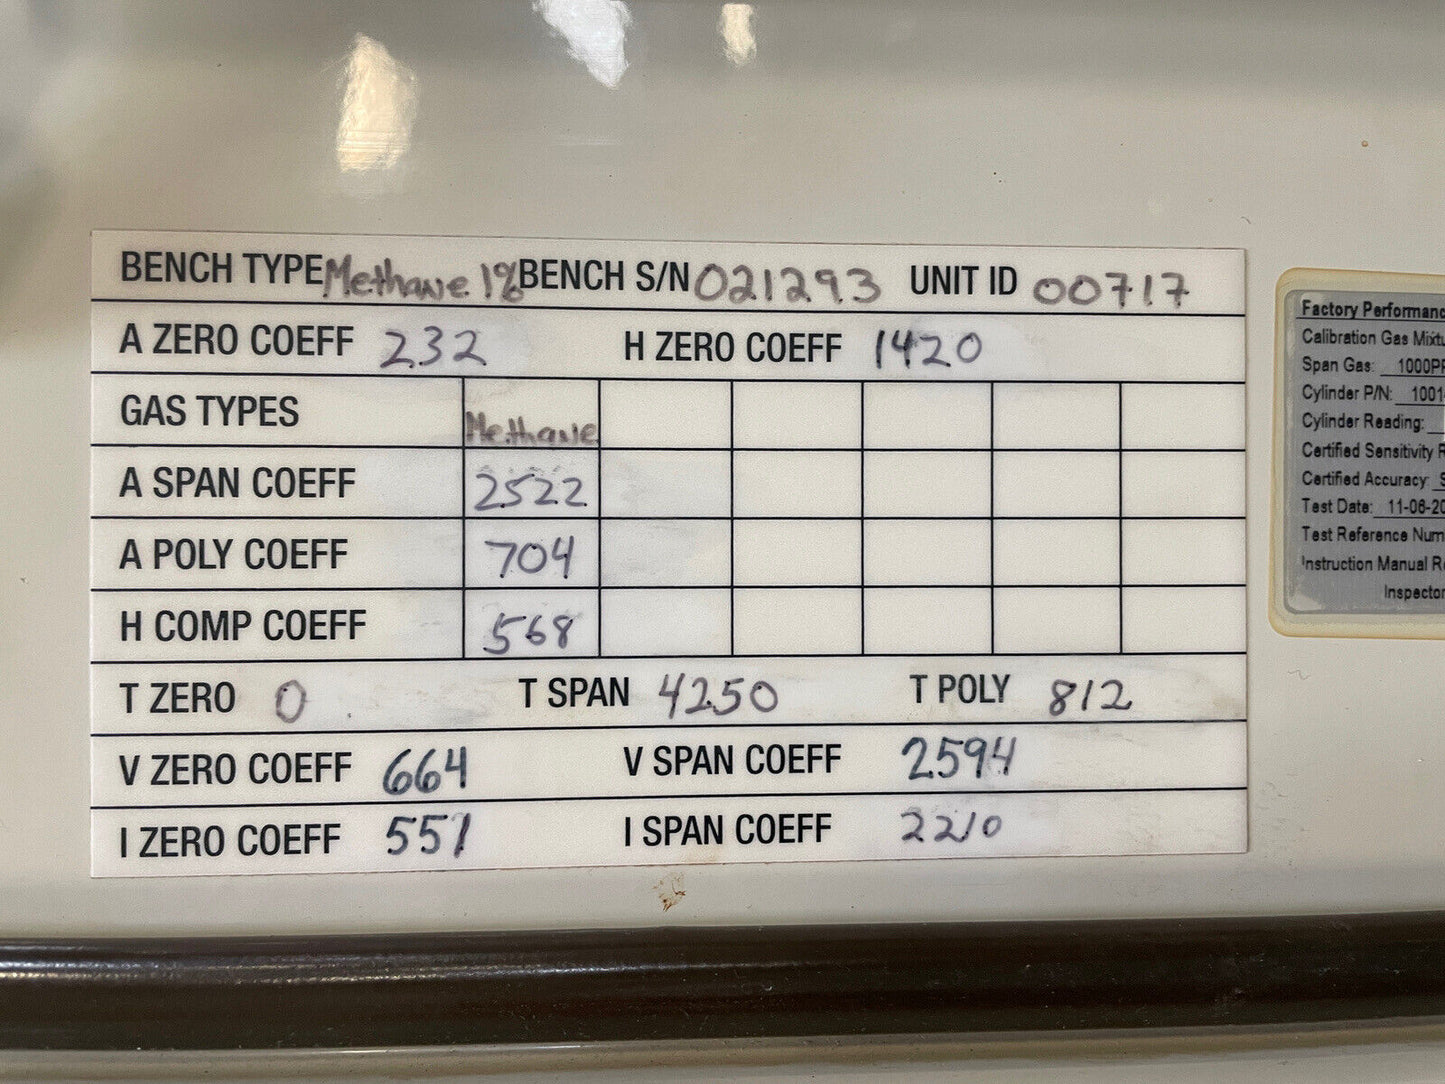 BENCH TYPE Methane 1% BENCH S/N 021293 UNIT ID 00717
A ZERO COEFF 232 H ZERO COEFF 1420
GAS TYPES Methane
A SPAN COEFF 2522
A POLY COEFF 704
H COMP COEFF 568
T ZERO 0 T SPAN 4250 T POLY 812
V ZERO COEFF 664 V SPAN COEFF 2594
I ZERO COEFF 551 I SPAN COEFF 2210
Factory Performanc
Calibration Gas Mixtu
Span Gas: 1000PP
Cylinder P/N: 1001
Cylinder Reading:
Certified Sensitivity R
Certified Accuracy: S
Test Date: 11-06-20
Test Reference Num
Instruction Manual Re
Inspector